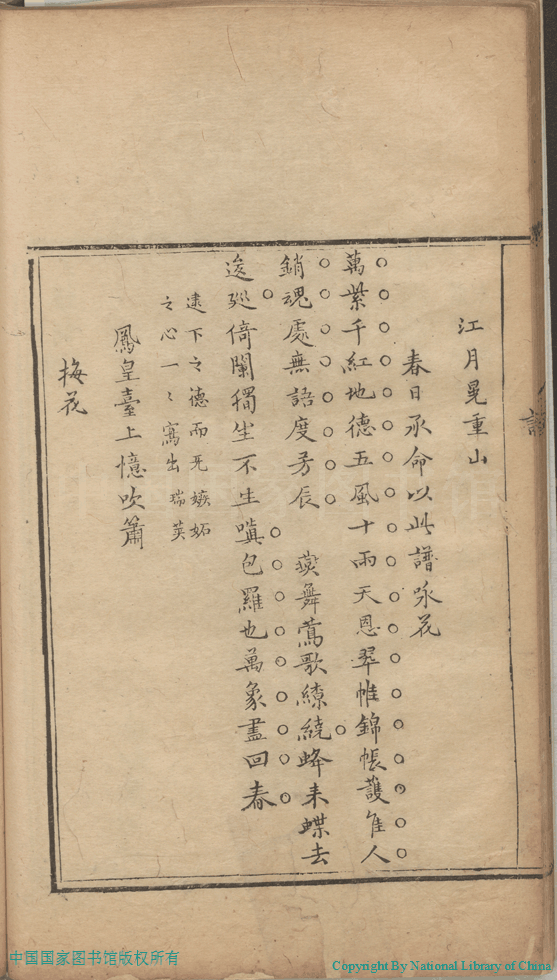 江月晃重山
春日承命以此譜咏花
萬紫千紅地德五風十雨天恩翠帷錦帳護佳人
銷魂處無語度芳辰　燕舞鶯歌繚繞蜂来蝶去
逡廵倚闌獨坐不生嗔包羅也萬象盡回春
逮下之德而旡嫉妬
之心一〻寫出　瑞英
鳳皇臺上憶吹簫
梅花
中国国家图书馆版权所有
Copyright By National Library of China